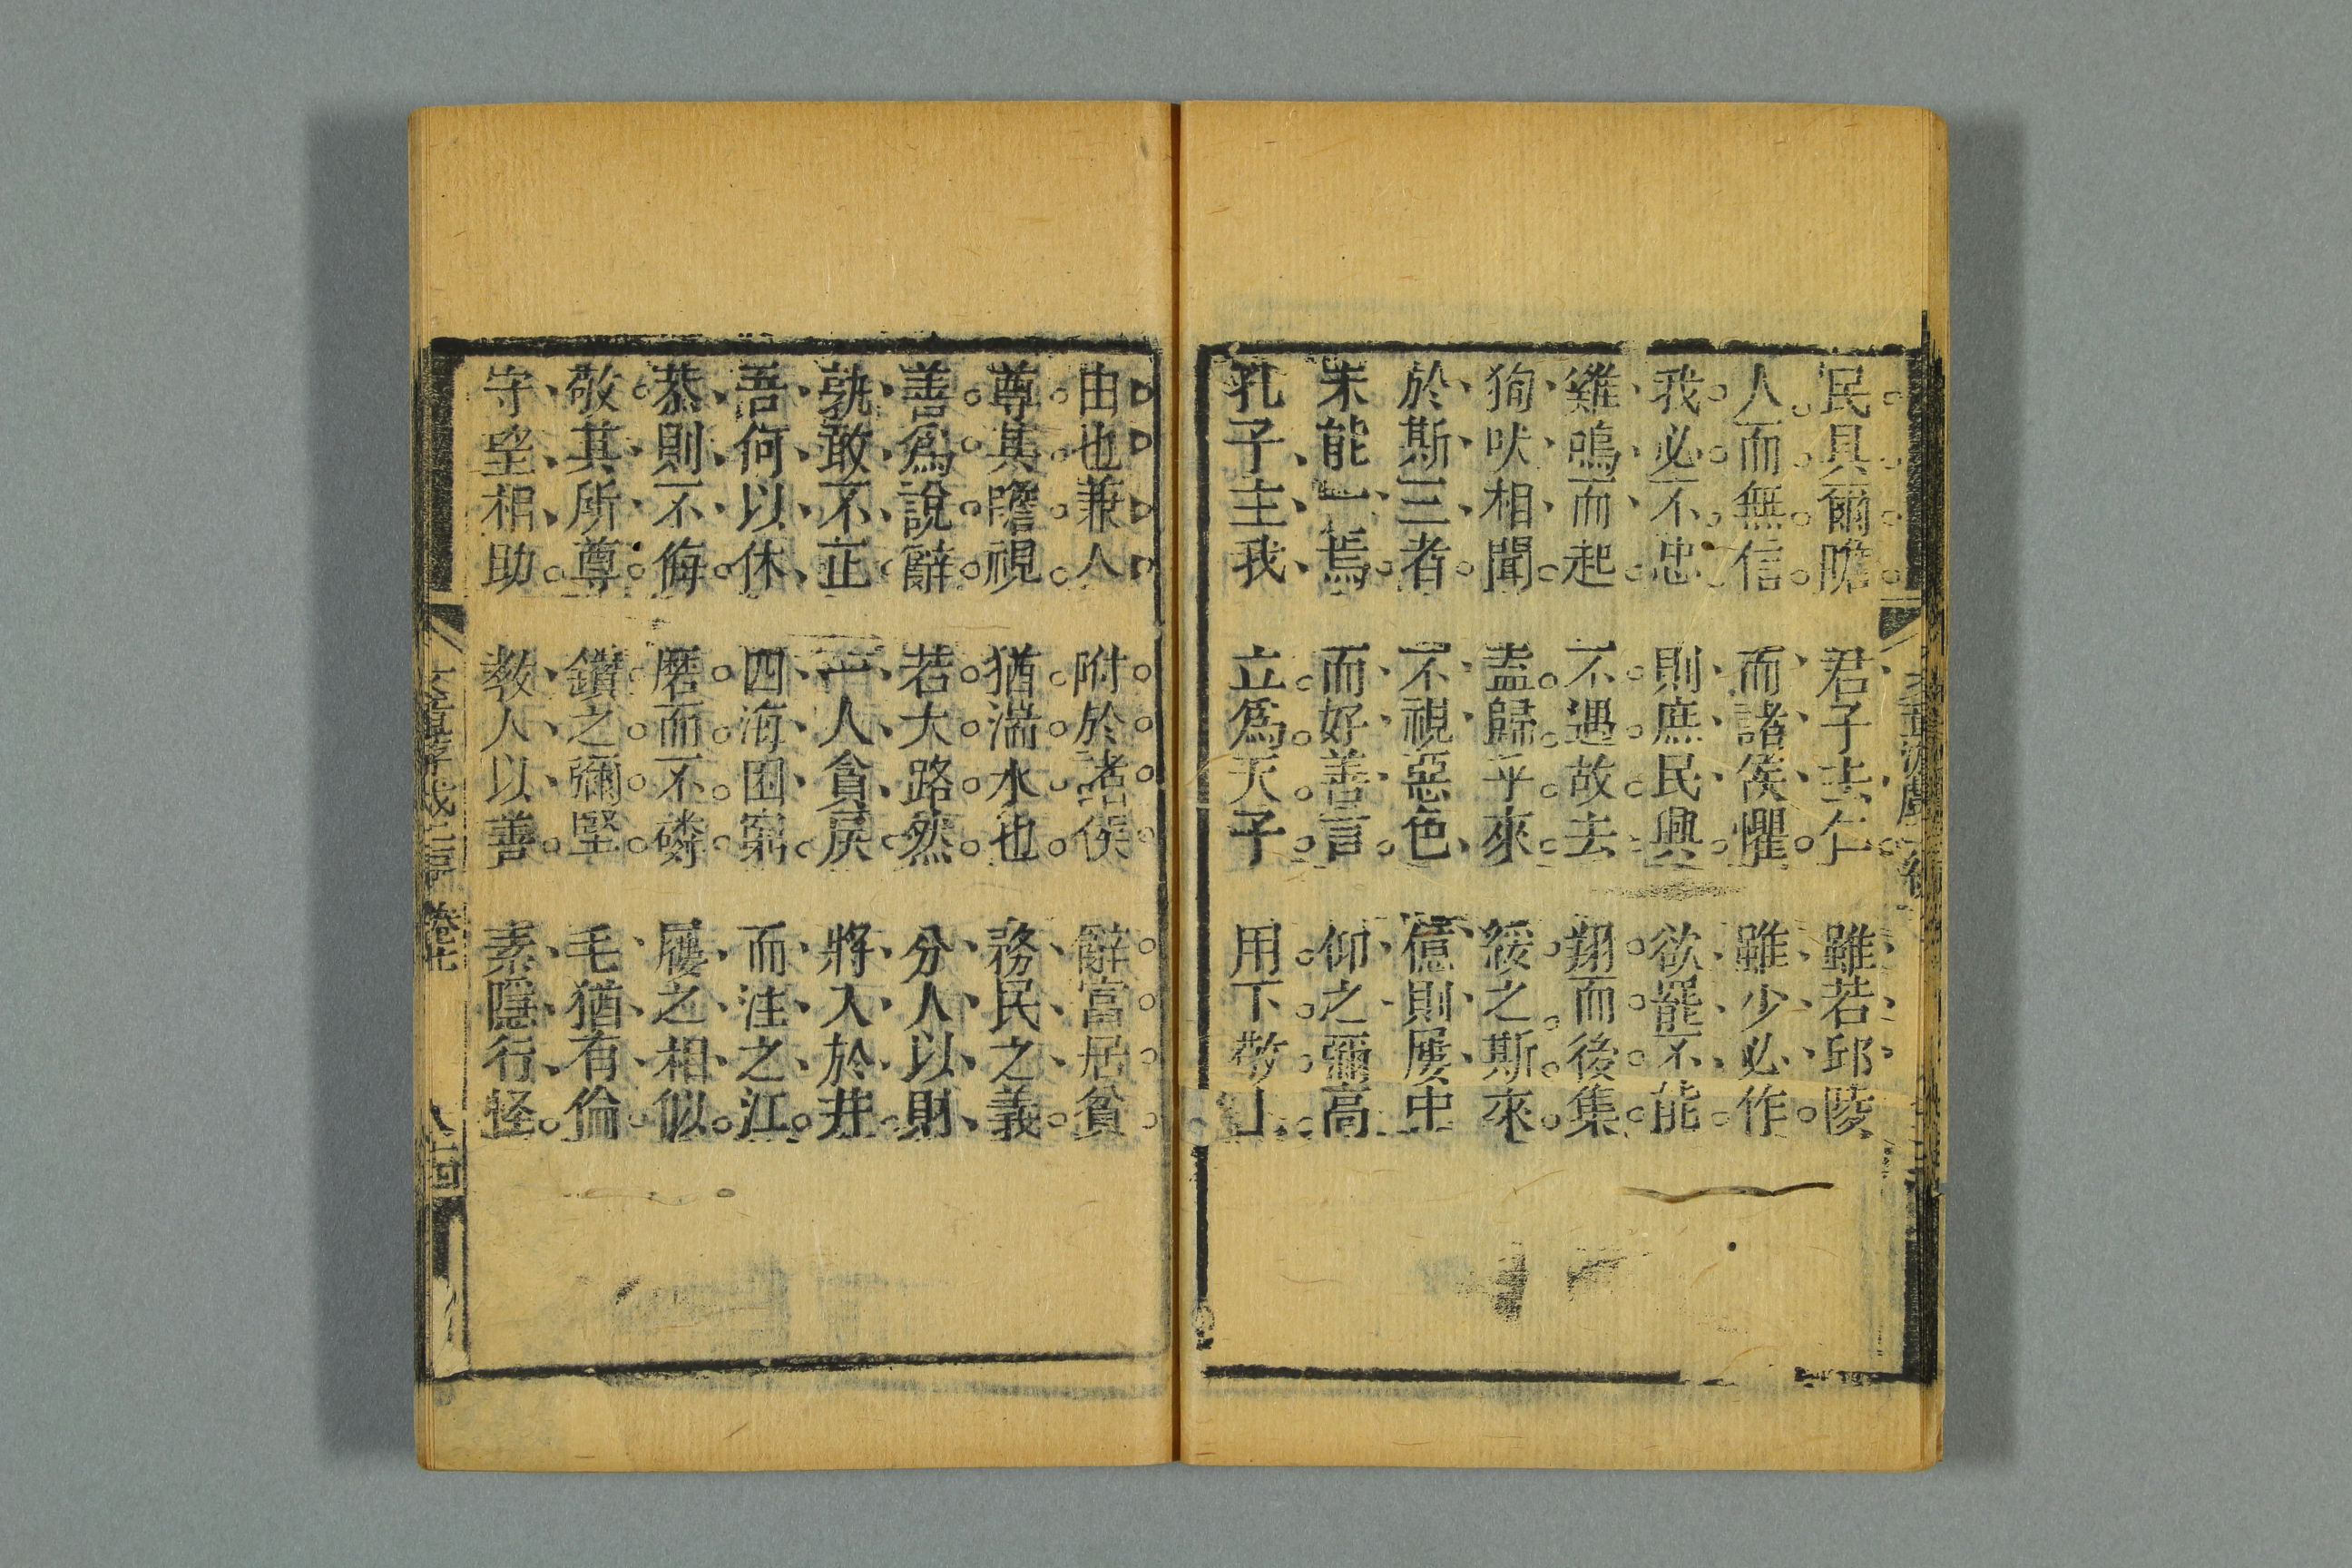 民具爾瞻 君子去仁 雖若邱陵
人而無信 而諸侯懼 雖少必作
我必不忠 則庶民興 欲罷不能
雞鳴而起 不遇故去 翔而後集
狗吠相聞 盍歸乎來 綏之斯來
於斯三者 不視惡色 億則屢中
未能一焉 而好善言 仰之彌高
孔子主我 立爲天子 用下敬上
由也兼人 附於諸侯 辭富居貧
尊其瞻視 猶湍水也 務民之義
善爲說辭 若大路然 分人以財
孰敢不正 一人貪戾 將入於井
吾何以休 四海困窮 而注之江
恭則不侮 磨而不磷 屨之相似
敬其所尊 鑽之彌堅 毛猶有倫
守望相助 教人以善 素隱行怪